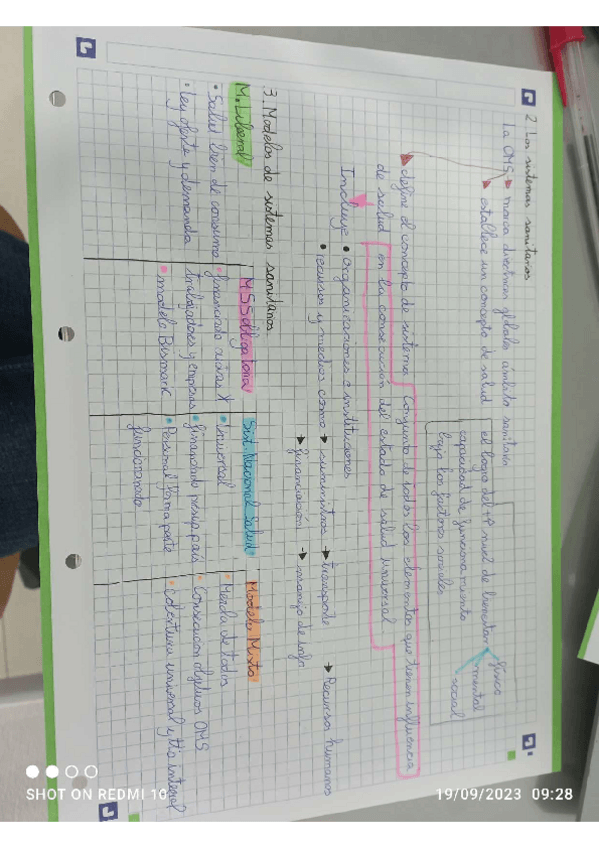 2. Los sistemas sanitarios
La OMS → marca directrices globales ámbito sanitario
→ establece un concepto de salud
el logro del nivel de bienestar
física
mental
social
capacidad de funcionamiento
bajo los factores sociales
→ define el concepto de sistema
de salud
Conjunto de todos los elementos que tienen influencia
en la consecución del estado de salud universal
Incluye • organizaciones e instituciones
• recursos y medios como → suministros → transporte → Recursos humanos
→ financiación → manejo de info
3. Modelos de sistemas sanitarios.
M. Liberal
• Salud bien de consumo
• Ley oferta y demanda
M. S. S obligatoria
• financiado cuotas x
trabajadores y empresas
• modelo Bismark
Sist. Nacional Salud
• Universal
• financiado presup. país
• Personal forma parte
funcionariado
Modelo Mixto
• Mezcla de todos
• Consecución objetivos OMS
• cobertura universal y tto integral
SHOT ON REDMI 10
19/09/2023 09:28